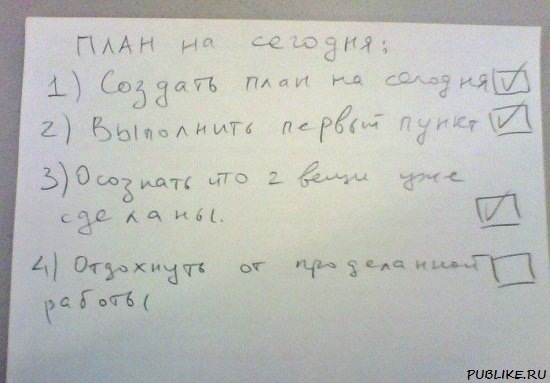 ПЛАН на сегодня:
1) Создать план на сегодня
2) Выполнить первый пункт
3) Осознать что 2 вещи уже
сделаны.
4) Отдохнуть от проделанной
работы
PUBLIKE.RU